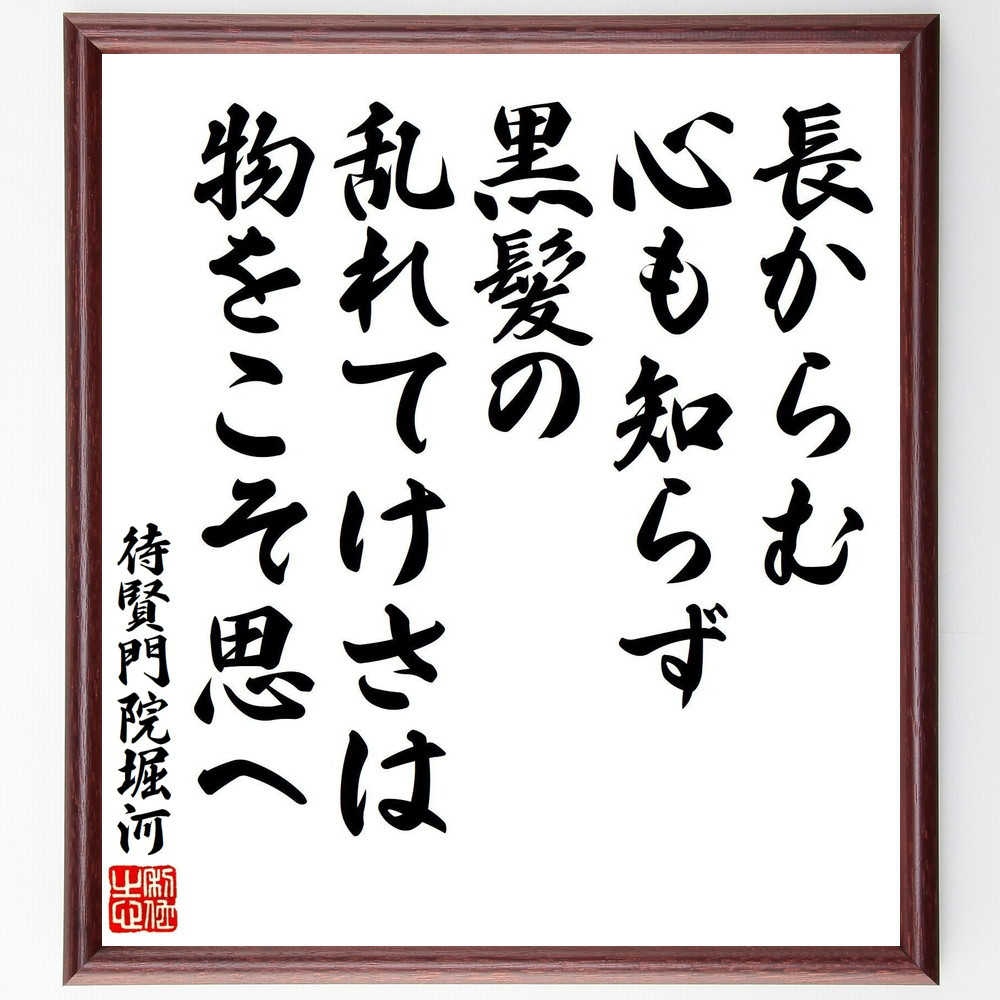 長からむ
心も知らず
黒髪の
乱れてけさは
物をこそ思へ
待賢門院堀河